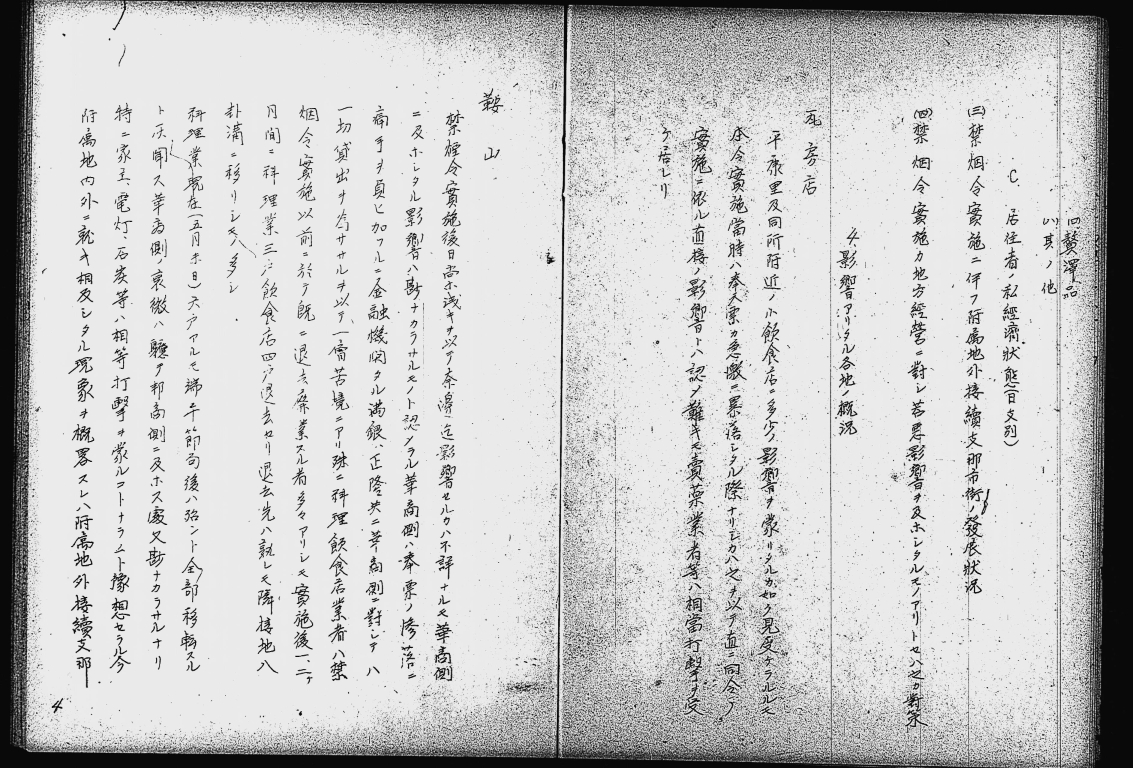 (ロ)贅澤品
(ハ)其ノ他
C. 居住者ノ私經濟狀態(日支別)
(三)禁烟令實施ニ伴フ附属地外接續支那市街ノ發展狀況
(四)禁烟令實施カ地方經營ニ對シ若シ悪影響ヲ及ホシタルモノアリトセハ之カ對策
4. 影響アリタル各地ノ概況
瓦房店
平康里及同所附近ノ小飲食店ニ多少ノ影響ヲ蒙リタルカ如ク見受ケラルルモ
本令實施當時ハ奉天票カ急激ニ暴落シタル際ナリシカハ之ヲ以テ直ニ同令ノ
實施ニ依ル直接ノ影響トハ認メ難キモ賣藥業者等ハ相當打擊ヲ受
ケ居レリ
鞍山
禁煙令實施後日尚ホ浅キヲ以テ奈邊迄影響セルカハ不詳ナルモ華商側
ニ及ホシタル影響ハ尠ナカラサルモノト認メラル華商側ハ奉票ノ惨落ニ
痛手ヲ負ヒ加フルニ金融機関タル満銀、正隆共ニ華商側ニ對シテハ
一切貸出ヲ為サヽルヲ以テ一層苦境ニアリ殊ニ料理飲食店業者ハ禁
烟令實施以前ニ於テ既ニ退去廃業スル者多々アリシモ實施後一、二ケ
月間ニ料理業三戸飲食店四戸退去セリ退去先ハ孰レモ隣接地八
卦溝ニ移リシモノ多シ
料理業現在(五月末日)六戸アルモ端午節句後ハ殆ント全部移転スル
ト仄聞ス華商側ノ衰微ハ驤テ邦商側ニ及ホス處又尠ナカラサルナリ
特ニ家主、電灯、石炭等ハ相等打撃ヲ蒙ルコトナラムト豫想セラル今
附属地内外ニ就キ相及シタル現象ヲ概畧スレハ附属地外接續支那
4